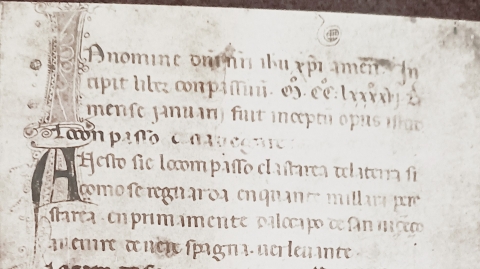 In nomine dnī nrī ihu xpi amen. In
cipit liber conpassuū. M. CC. lxxxxvj. de
mense januarij fuit inceptū opus istud
Lo conpasso da navegare
Qvesto sie lo conpasso e la starea dela terra si
como se reguarda en quante millara per
starea. en primamente dalo capo de san vicēço
avenire de ver spagna. ver levante.